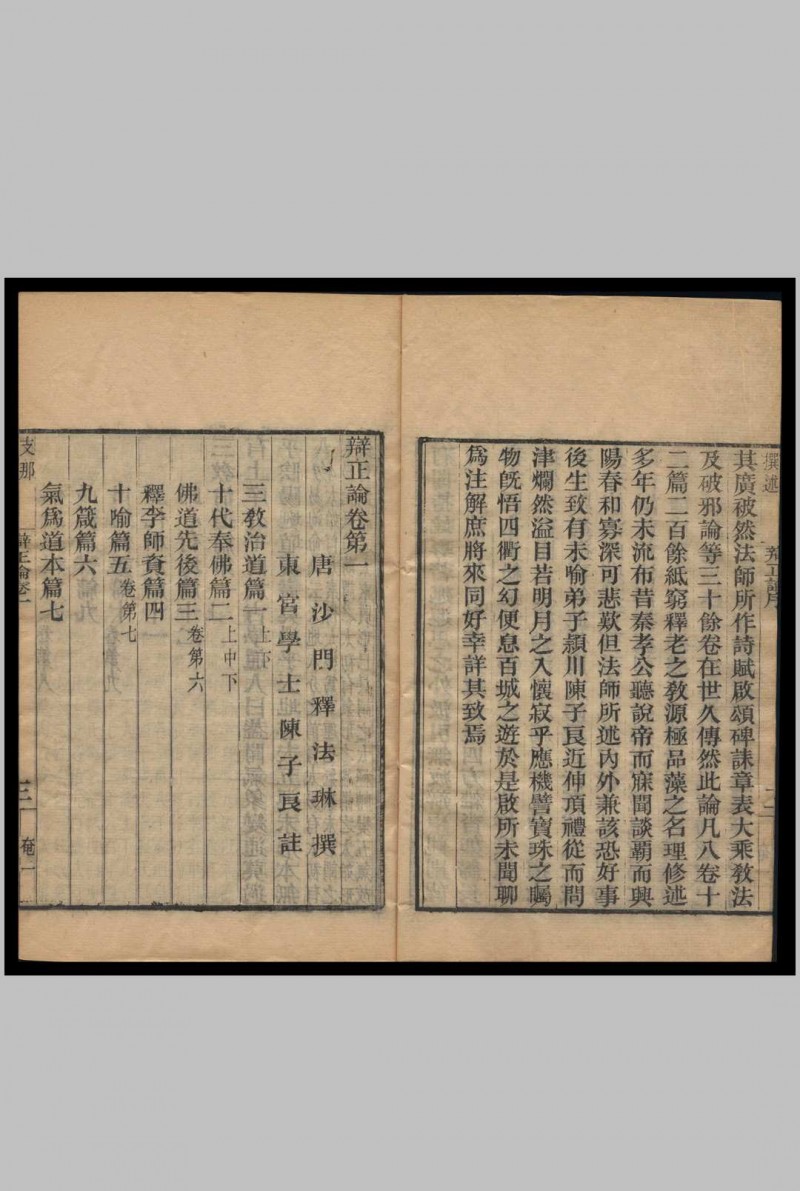 撰述
其廣被然法師所作詩賦啟頌碑誄章表大乘敎法
及破邪論等三十餘卷在世久傳然此論凡八卷十
二篇二百餘紙窮釋老之敎源極品藻之名理修述
多年仍未流布昔秦孝公聽說帝而寐聞談覇而興
陽春和寡深可悲歎但法師所述內外兼該恐好事
後生致有未喻弟子頴川陳子良近伸頂禮從而問
津爛然溢目若明月之入懷寂乎應機譬寶珠之矚
物旣悟四衢之幻便息百城之遊於是啟所未聞聊
爲注解庶將來同好幸詳其致焉
辯正論卷第一
唐沙門釋法琳撰
東宮學士陳子良註
三敎治道篇一上下
十代奉佛篇二上中下
佛道先後篇三卷第六
釋李師資篇四
十喻篇五卷第七
九箴篇六
氣爲道本篇七
支那